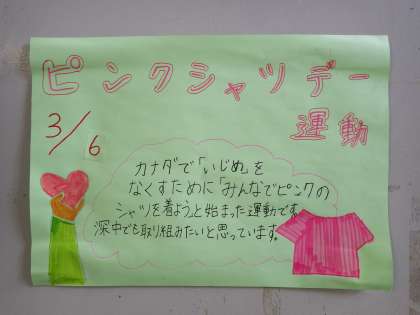 ピンクシャツデー
運動
3/6
カナダで「いじめ」を
なくすために「みんなでピンクの
シャツを着よう」と始まった運動です。
深中でも取り組みたいと思っています。